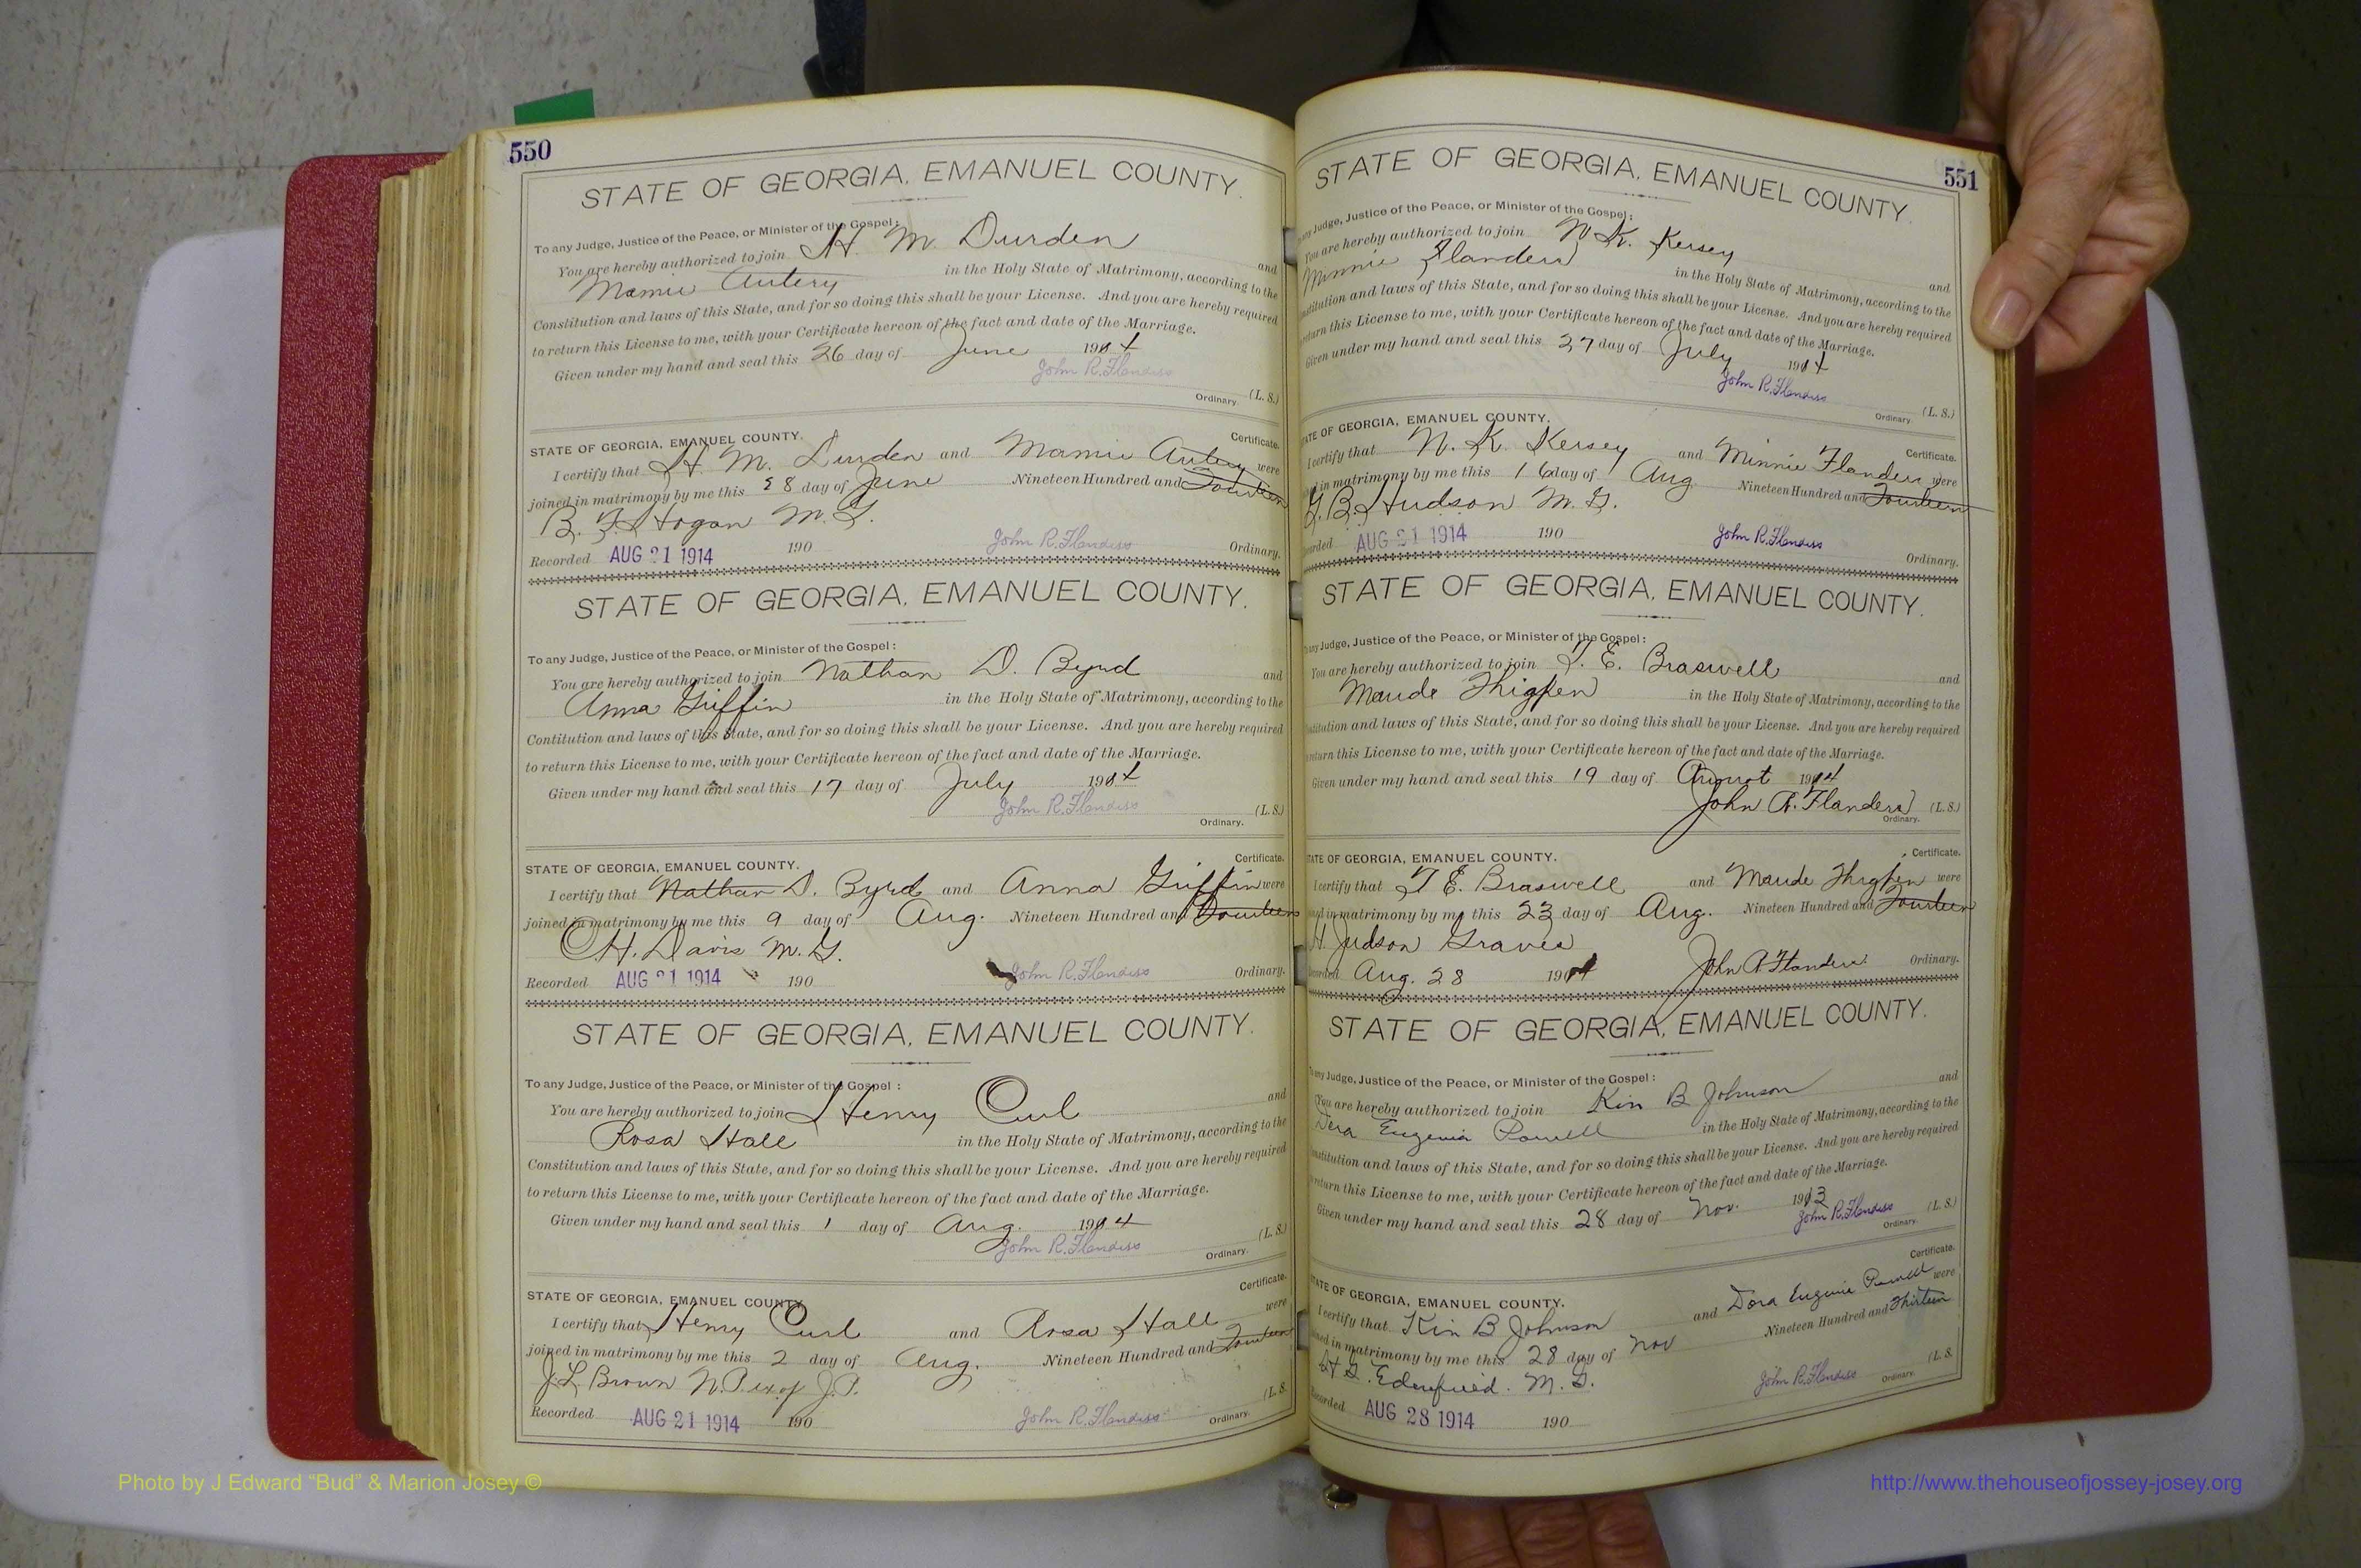 550
STATE OF GEORGIA, EMANUEL COUNTY.
To any Judge, Justice of the Peace, or Minister of the Gospel:
You are hereby authorized to join H. M. Durden and
Mamie Autery in the Holy State of Matrimony, according to the
Constitution and laws of this State, and for so doing this shall be your License. And you are hereby required
to return this License to me, with your Certificate hereon of the fact and date of the Marriage.
Given under my hand and seal this 26 day of June 1914
John R. Flanders
Ordinary. (L. S.)
STATE OF GEORGIA, EMANUEL COUNTY. Certificate.
I certify that H. M. Durden and Mamie Autery were
joined in matrimony by me this 28 day of June Nineteen Hundred and Fourteen
B. F. Hogan M. G.
Recorded AUG 21 1914 190 John R. Flanders Ordinary.
STATE OF GEORGIA, EMANUEL COUNTY.
To any Judge, Justice of the Peace, or Minister of the Gospel:
You are hereby authorized to join Nathan D. Byrd and
Anna Griffin in the Holy State of Matrimony, according to the
Contitution and laws of this State, and for so doing this shall be your License. And you are hereby required
to return this License to me, with your Certificate hereon of the fact and date of the Marriage.
Given under my hand and seal this 17 day of July 1914
John R. Flanders (L. S.)
Ordinary.
STATE OF GEORGIA, EMANUEL COUNTY. Certificate.
I certify that Nathan D. Byrd and Anna Griffin were
joined in matrimony by me this 9 day of Aug. Nineteen Hundred and Fourteen
C. H. Davis M. G.
Recorded AUG 21 1914 190 John R. Flanders Ordinary.
STATE OF GEORGIA, EMANUEL COUNTY.
To any Judge, Justice of the Peace, or Minister of the Gospel:
You are hereby authorized to join Henry Curl and
Rosa Hall in the Holy State of Matrimony, according to the
Constitution and laws of this State, and for so doing this shall be your License. And you are hereby required
to return this License to me, with your Certificate hereon of the fact and date of the Marriage.
Given under my hand and seal this 1 day of Aug. 1914
John R. Flanders (L. S.)
Ordinary.
STATE OF GEORGIA, EMANUEL COUNTY. Certificate.
I certify that Henry Curl and Rosa Hall were
joined in matrimony by me this 2 day of Aug. Nineteen Hundred and Fourteen
J. L. Brown N. P. ex of J. P. (L. S.
Recorded AUG 21 1914 190 John R. Flanders Ordinary.
551
STATE OF GEORGIA, EMANUEL COUNTY.
any Judge, Justice of the Peace, or Minister of the Gospel:
You are hereby authorized to join N. K. Kersey and
Minnie Flanders in the Holy State of Matrimony, according to the
stitution and laws of this State, and for so doing this shall be your License. And you are hereby required
return this License to me, with your Certificate hereon of the fact and date of the Marriage.
Given under my hand and seal this 27 day of July 1914
John R. Flanders (L. S.)
Ordinary.
ATE OF GEORGIA, EMANUEL COUNTY. Certificate.
I certify that N. K. Kersey and Minnie Flanders were
in matrimony by me this 16 day of Aug. Nineteen Hundred and Fourteen
G. B. Hudson M. G.
AUG 21 1914 190 John R. Flanders Ordinary.
STATE OF GEORGIA, EMANUEL COUNTY.
any Judge, Justice of the Peace, or Minister of the Gospel:
You are hereby authorized to join T. E. Braswell and
Maude Thigpen in the Holy State of Matrimony, according to the
stitution and laws of this State, and for so doing this shall be your License. And you are hereby required
return this License to me, with your Certificate hereon of the fact and date of the Marriage.
Given under my hand and seal this 19 day of August 1914
John R. Flanders (L. S.)
Ordinary.
ATE OF GEORGIA, EMANUEL COUNTY. Certificate.
I certify that T. E. Braswell and Maude Thigpen were
in matrimony by me this 23 day of Aug. Nineteen Hundred and Fourteen
H. Judson Graves
Aug. 28 1914 John R. Flanders Ordinary.
STATE OF GEORGIA, EMANUEL COUNTY.
any Judge, Justice of the Peace, or Minister of the Gospel:
You are hereby authorized to join Kin B Johnson and
Dora Eugenia Powell in the Holy State of Matrimony, according to the
stitution and laws of this State, and for so doing this shall be your License. And you are hereby required
return this License to me, with your Certificate hereon of the fact and date of the Marriage.
Given under my hand and seal this 28 day of Nov. 1913
John R. Flanders (L. S.)
Ordinary.
TATE OF GEORGIA, EMANUEL COUNTY. Certificate.
I certify that Kin B Johnson and Dora Eugenia Powell were
in matrimony by me this 28 day of Nov Nineteen Hundred and Thirteen
M. G. (L. S.
Recorded AUG 28 1914 190 John R. Flanders Ordinary.
Photo by J Edward “Bud” & Marion Josey ©
http://www.thehouseofjossey-josey.org